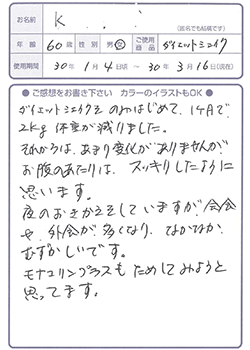 お名前 K
(匿名でも結構です)
年齢 60歳 性別 男・女 ご使用商品 ダイエットシェイク
使用期間 30年 1月 4日頃 ～ 30年 3月 16日(現在)
● ご感想をお書き下さい カラーのイラストもOK ●
ダイエットシェイクを のみはじめて、1ヶ月で
2kg 体重が減りました。
それからは、あまり変化がありませんが
お腹のあたりは、スッキリしたように
思います。
夜のおきかえをしていますが、会食
や、外食が多くなり、なかなか、
むずかしいです。
モナコリンプラスもためしてみようと
思ってます。